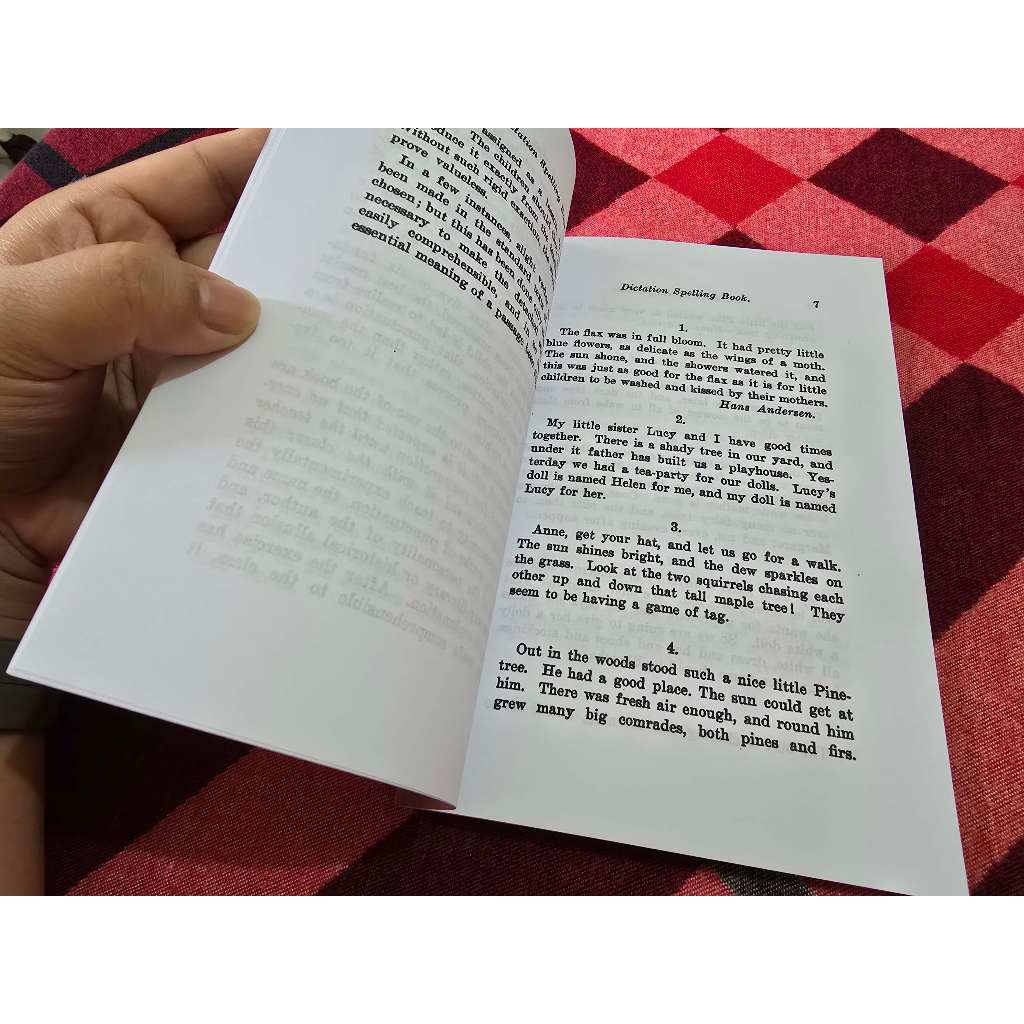 assigned as a
The children should
duce it exactly from the
Without such rigid exaction, i
prove valueless.
In a few instances, slight
been made in the standard
chosen; but this has been done
necessary to make the detached
easily comprehensible, and in
essential meaning of a passage
Dictation Spelling Book. 7
1.
The flax was in full bloom. It had pretty little
blue flowers, as delicate as the wings of a moth.
The sun shone, and the showers watered it, and
this was just as good for the flax as it is for little
children to be washed and kissed by their mothers.
Hans Andersen.
2.
My little sister Lucy and I have good times
together. There is a shady tree in our yard, and
under it father has built us a playhouse. Yes-
terday we had a tea-party for our dolls. Lucy's
doll is named Helen for me, and my doll is named
Lucy for her.
3.
Anne, get your hat, and let us go for a walk.
The sun shines bright, and the dew sparkles on
the grass. Look at the two squirrels chasing each
other up and down that tall maple tree! They
seem to be having a game of tag.
4.
Out in the woods stood such a nice little Pine-
tree. He had a good place. The sun could get at
him. There was fresh air enough, and round him
grew many big comrades, both pines and firs.